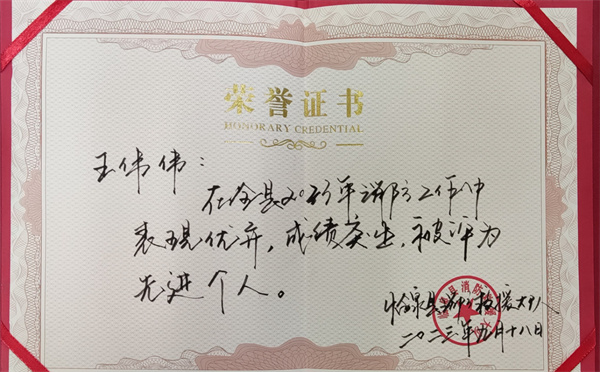 荣誉证书
HONORARY CREDENTIAL
王伟伟：
在全县2023年消防工作中
表现优异，成绩突出，被评为
先进个人。
临泉县消防救援大队
二〇二三年九月十八日